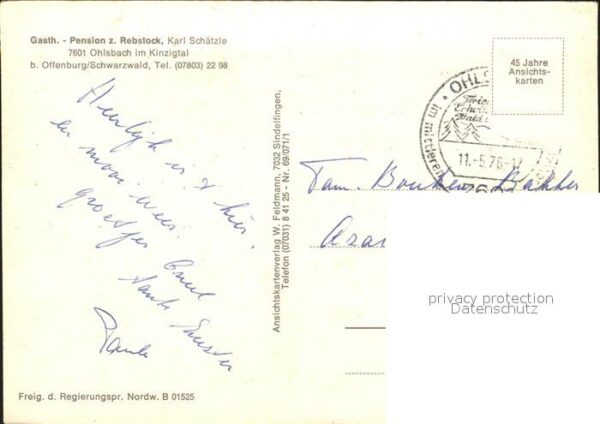 Gasth. - Pension z. Rebstock, Karl Schätzle
7601 Ohlsbach im Kinzigtal
b. Offenburg/Schwarzwald, Tel. (07803) 22 98
Heerlijk is 't hier.
en mooi weer.
groetjes
tante
Ansichtskartenverlag W. Feldmann, 7032 Sindelfingen,
Telefon (07031) 8 41 25 - Nr. 69/071/1
45 Jahre
Ansichts-
karten
OHLS
im mittleren
11.-5.76-17
Fam.
privacy protection
Datenschutz
Freig. d. Regierungspr. Nordw. B 01525